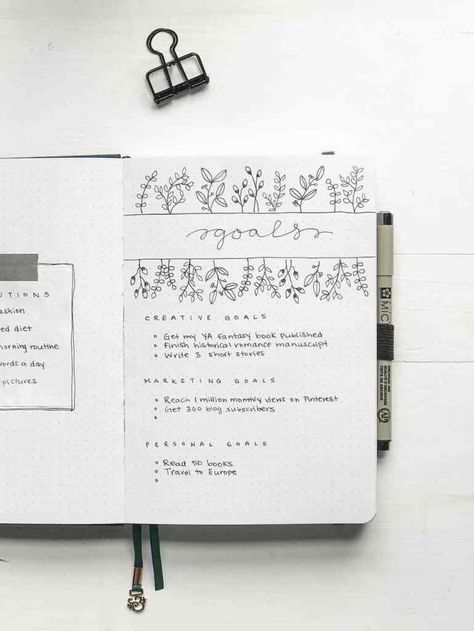 UTIONS
fashion
ed diet
morning routine
words a day
pictures
goals
CREATIVE GOALS
Get my YA Fantasy book published
Finish historical romance manuscript
Write 3 short stories
MARKETING GOALS
Reach 1 million monthly views on Pinterest
Get 300 blog subscribers
PERSONAL GOALS
Read 50 books
Travel to Europe
MIC